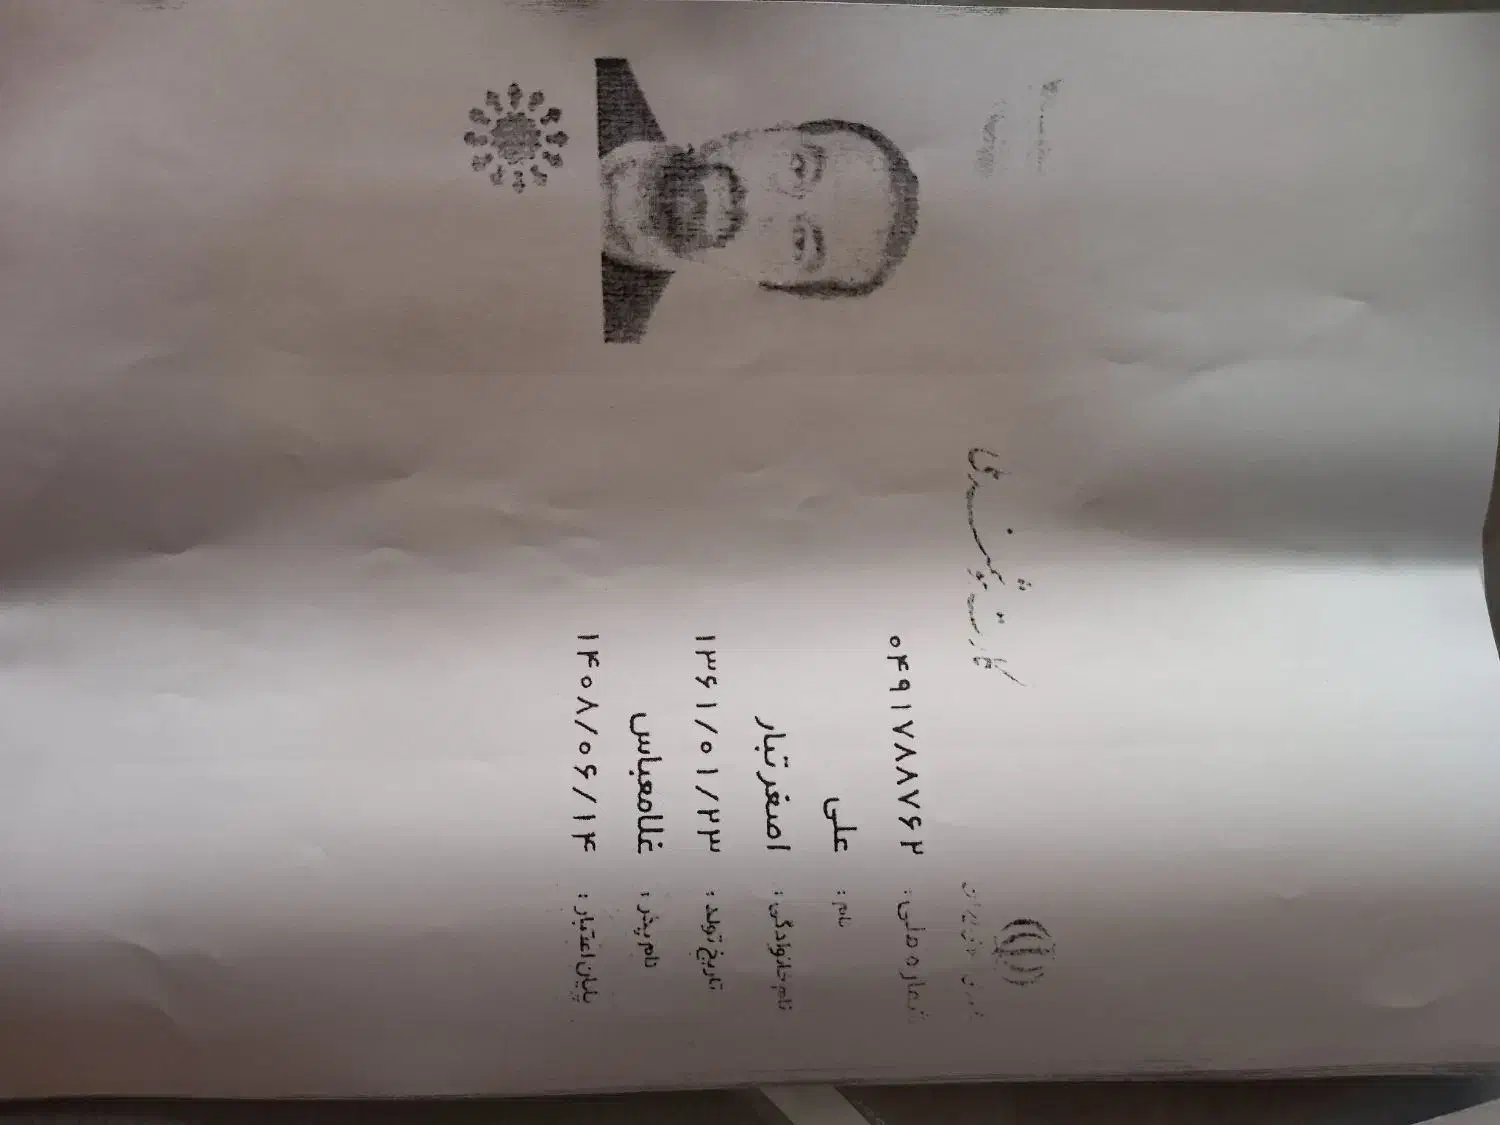 کارت هوشمند ملی
شماره ملی : ۰۴۹۱۷۸۸۷۶۲
نام : علی
نام خانوادگی : اصغر تبار
تاریخ تولد : ۱۳۶۱/۰۱/۲۳
نام پدر : غلامعباس
پایان اعتبار : ۱۴۰۸/۰۶/۱۴